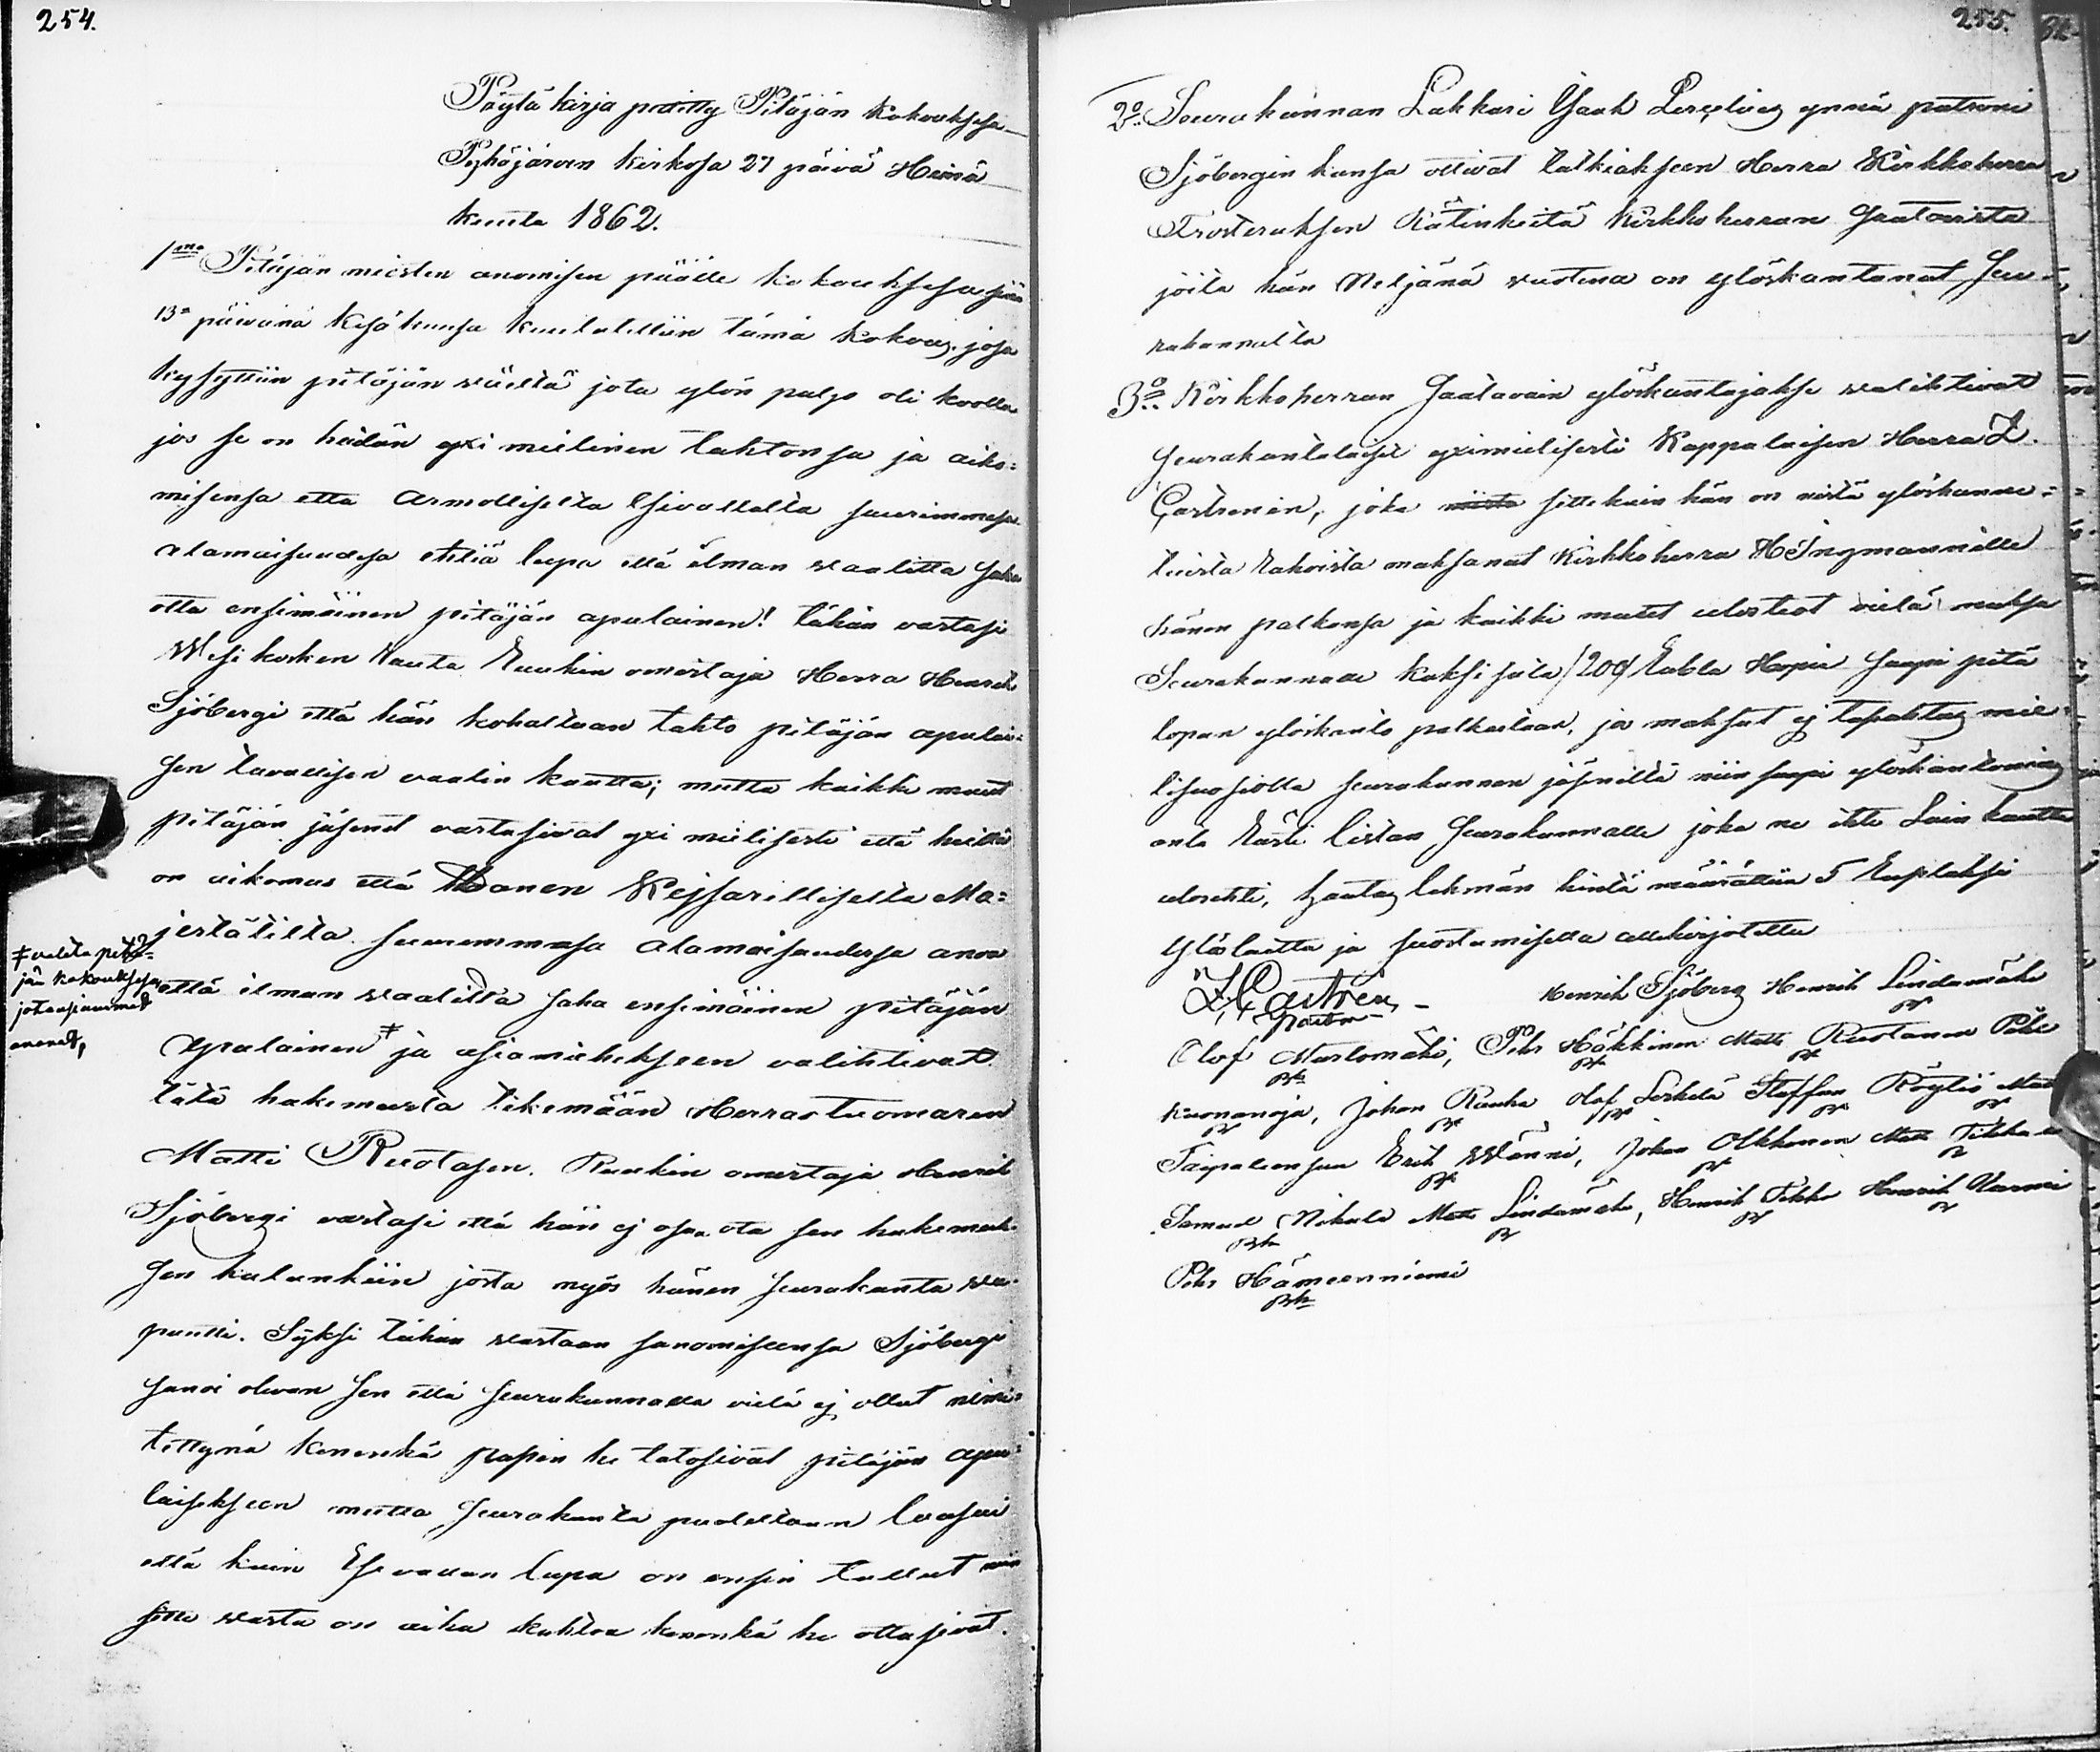 254.
Pöytä kirja pidetty Pitäjän kokouksesa
Pyhäjärven kirkosa 27 päivä Heinä
kuuta 1862.
1mo Pitäjän miesten anomisen päälle kokouksesa
13a päivänä Kesäkuusa kuulutettiin tämä kokous, josa
kysyttiin pitäjän väeltä jota ylön paljo oli koolla
jos se on heidän yximielinen tahtonsa ja aiko=
misensa että Armolliselta Esivallalta suurimmasa
alamaisuudesa etsiä lupa että ilman vaalitta saha
otta ensimäinen pitäjän apulainen! tähän vastasi
Wesikosken Rauta Ruukin omistaja Herra Henrik
Sjöbergi että hän kohastaan tahto pitäjän apulai=
sen tavallisen vaalin kautta; mutta kaikki muut
pitäjän jäsenet vastasivat yximielisesti että heillä
on aikomus että Hänen Kejsarilliselta Ma=
jestätiltä suurimmasa alamaisuudesa anoa
että ilman vaalitta saha ensimäinen pitäjän
apulainen ≠ ja asiamiehekseen valihtivat
tätä hakemusta tekemään Herrastuomaren
Matti Ruotasen. Ruukin omistaja Henrik
Sjöbergi vastasi että hän ej osaa ota sen hakemuk=
sen kulunkiin josta myös hänen seurakunta va=
pautti. Syksi tähän vastaan sanomiseensa Sjöbergi
sanoi olevan sen että seurakunnalla vielä ej ollut nimi=
tettynä kenenkä papin he tahtosivat pitäjän apu=
laiseksen mutta seurakunta puolestaan lausui
että kuin Esivallan lupa on ensin tullut niin
sitte vasta on aika kahtoa kenenkä he ottasivat.
≠ valita pitä=
jän kokouksesa
joteasianmet
anenet,
255.
2o. Seurakunnan Lukkari Isaak Perçelius ynnä patroni
Sjöbergin kansa ottivat tutkiakseen Herra Kirkkoherra
Frosteruksen Rätinkiitä Kirkkoherran Saatavista
joita hän Neljänä vuotena on ylöskantanut seu=
rakunnalta
3o. Kirkkoherran Saatavain ylöskantajaksi valihtivat
seurakuntalaiset yximielisesti Kappalaisen Herra Z.
Castrenin, joka sittekuin hän on niistä ylöskanne=
tuista Rahoista maksanut Kirkkoherra H Ingmannille
hänen palkansa ja kaikki muut ulosteot vielä maksa
Seurakunnalle kaksi sata /200/ Rubla Hopia saapi pitä
lopun ylöskanto palkastaan, ja maksut ej tapahtu mie=
lisuosiolla seurakunnan jäseniltä niin saapi ylöskantomies
anta Rästi listan seurakunnalle joka ne itte Lain kautta
uloshti, hautaus lehmän hinta määrättiin 5 Ruplaksi
Ylösluettu ja suostumisella allekirjotettu
Z. Castrén
pastor
Henrik Sjöberg Henrik Lindamäki
Olof Marlomäki, Pehr Häkkinen Matts Ruotanen Pehr
Kuonanoja, Johan Rauha Olof Leskelä Staffan Röytiö Matts
Taipaleensuu Erik Wänni, Johan Olkkonen Matts Tikka
Samuel Nikula Matts Lindamäki, Henrik Tikka Henrik Warmi
Pehr Hämeenniemi